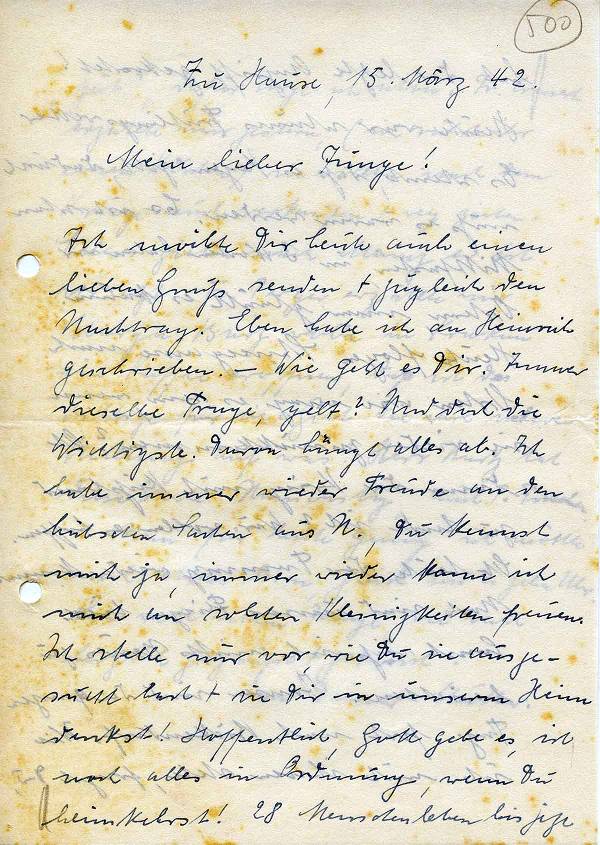 500
Zu Hause, 15. März 42.
Mein lieber Junge!
Ich möchte Dir heute auch einen
lieben Gruß senden + zugleich den
Nachtrag. Eben habe ich an Heinrich
geschrieben. – Wie geht es Dir. Immer
dieselbe Frage, gelt? Und doch die
Wichtigste. Davon hängt alles ab. Ich
habe immer wieder Freude an den
hübschen Sachen aus N., Du kennst
mich ja, immer wieder kann ich
mich an solchen Kleinigkeiten freuen.
Ich stelle mir vor, wie Du sie ausge-
sucht hast + sie Dir in unserm Heim
denkst! Hoffentlich, Gott gebe es, ist
noch alles in Ordnung, wenn Du
heimkehrst! 28 Menschenleben bis jetzt